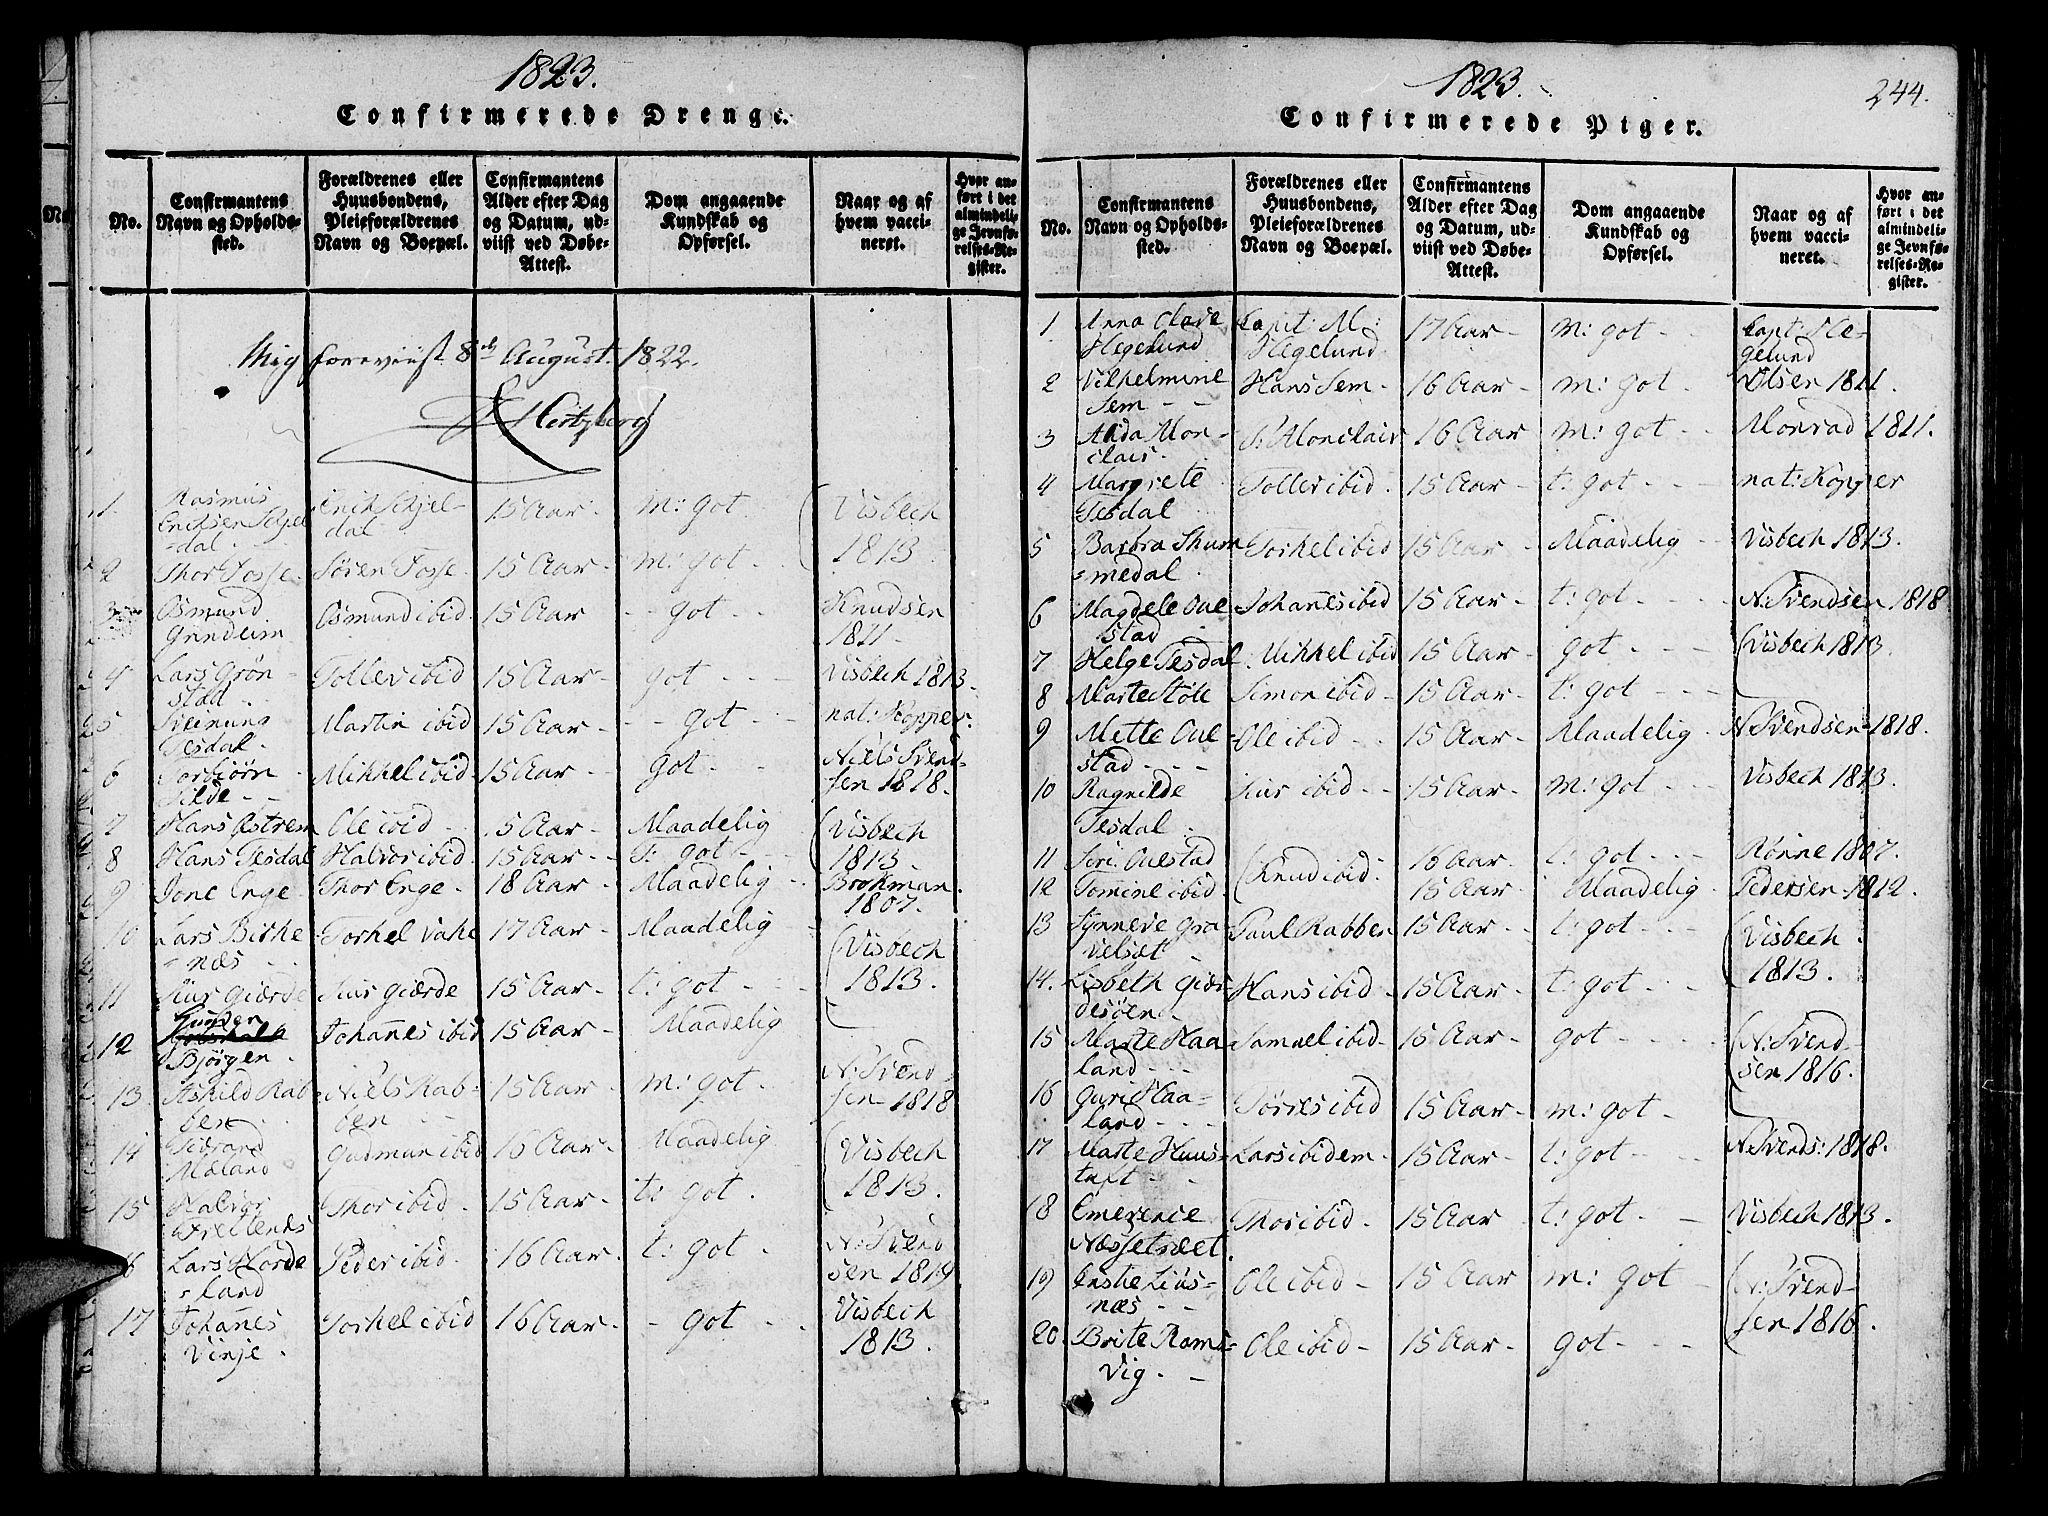 1823.
Confirmerede Drenge.
No.
Confirmantens
Navn og Opholds-
sted.
Forældrenes eller
Huusbondens,
Pleieforældrenes
Navn og Boepæl.
Confirmantens
Alder efter Dag
og Datum, ud-
viist ved Døbe-
Attest.
Dom angaaende
Kundskab og
Opførsel.
Naar og af
hvem vacci-
neret.
Hvor an-
ført i det
almindeli-
ge Jevnfø-
relses-Re-
gister.
Mig foreviist 8de August 1822.
Hertzberg
1. Rasmus Eriksen Skjel-dal Erik Skjel-dal 15 Aar m: got. Visbech 1813
2 Thor Fosse Søren Fosse 15 Aar m: got
3 Osmund Grindeim Osmund ibid 15 Aar got Knudsen 1811
4 Lars Grønstad Tollev ibid 15 Aar got Visbech 1813
5 Sveinung Tesdal Martin ibid 15 Aar got nat: Kopper
6 Torbiørn Tilde Mikkel ibid 15 Aar got Niels Svendsen 1818.
7 Hans Østrem Ole ibid 15 Aar Maadelig Visbech 1813
8 Hans Tesdal Halvor ibid 15 Aar t: got
9 Jone Enge Thor Enge 18 Aar Maadelig Brokman 1807.
10 Lars Birkenæs Torkel Vake 17 Aar Maadelig Visbech 1813.
11 Siur Giærde Siur Giærde 15 Aar t: got
12 Gunder Bjørgen Johannes ibid 15 Aar Maadelig
13 Askild Rabben Niels Rabben 15 Aar m: got N: Svendsen 1818
14 Mæland Gudmun ibid 16 Aar Maadelig Visbech 1813.
15 Halvor Thor ibid 15 Aar t: got
16 Lars Hordeland Peder ibid 16 Aar t: got N: Svendsen 1819
17 Johannes Vinje Torkel ibid 16 Aar got Visbech 1813.
1823.
244.
Confirmerede Piger.
No.
Confirmantens
Navn og Opholds-
sted.
Forældrenes eller
Huusbondens,
Pleieforældrenes
Navn og Boepæl.
Confirmantens
Alder efter Dag
og Datum, ud-
viist ved Døbe-
Attest.
Dom angaaende
Kundskab og
Opførsel.
Naar og af
hvem vacci-
neret.
Hvor an-
ført i det
almindeli-
ge Jevnfø-
relses-Re-
gister.
1 Anna Hegelund Capit: M: Hegelund 17 Aar m: got Capt: Hegelund
2 Vilhelmine Sem Hans Sem 16 Aar m: got Olsen 1811.
3 Alida Monclair S: Monclair 16 Aar m: got Monrad 1811.
4 Margrete Tesdal Tollev ibid 15 Aar t: got nat: Kopper
5 Barbra Skummedal Torkel ibid 15 Aar Maadelig Visbech 1813.
6 Magdele Ouestad Johannes ibid 15 Aar t: got N: Svendsen 1818
7 Helge Tesdal Mikkel ibid 15 Aar got Visbech 1813.
8 Marte Støle Simon ibid 15 Aar t: got
9 Mette Ouestad Ole ibid 15 Aar Maadelig N Svendsen 1818.
10 Ragnilde Tesdal Siur ibid 15 Aar m: got Visbech 1813.
11 Siri Ouestad Knud ibid 16 Aar t: got Rønne 1807.
12 Tomine ibid 15 Aar Maadelig Pedersen 1812.
13 Synneve Gravelsæt Paul Rabben 15 Aar t: got Visbech 1813.
14. Lisbeth Giærdesøen Hans ibid 15 Aar t: got
15 Marte Haaland Samuel ibid 15 Aar got N: Svendsen 1816.
16 Guri Haaland Tørres ibid 15 Aar m: got
17 Marte Huustuft Lars ibidem 15 Aar t: got N. Svends: 1818.
18 Emerence Næssetræet Thor ibid 15 Aar t: got Visbech 1813.
19 Liusnæs Ole ibid 15 Aar m: got N: Svendsen 1816.
20. Brite Ramsvig Ole ibid 15 Aar got